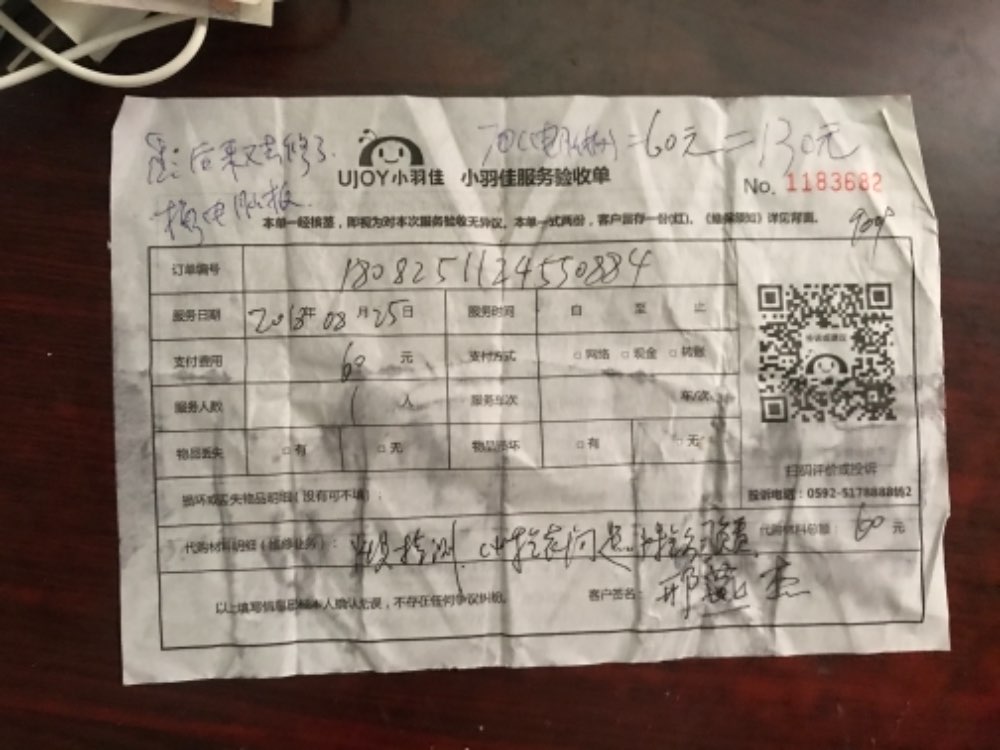 后来又去修了 70(电脑板)=60元=130元
换电脑板
UJOY小羽佳 小羽佳服务验收单
No. 1183682
本单一经核签，即视为对本次服务验收无异议。本单一式两份，客户留存一份(红)。《维保须知》详见背面。
订单编号 1808251124550884
服务日期 2018年08月25日 服务时间 自 至 止
支付费用 60 元 支付方式 □网络 □现金 □转账
服务人数 1 人 服务车次 车/次
物品丢失 □有 □无 物品损坏 □有 □无
扫码评价或投诉
损坏或丢失物品明细（没有可不填）：
投诉电话：0592-5178888转2
代购材料明细（维修业务）： 检测 问题 代购材料总额： 60 元
以上填写信息已经本人确认无误，不存在任何争议纠纷。 客户签名：